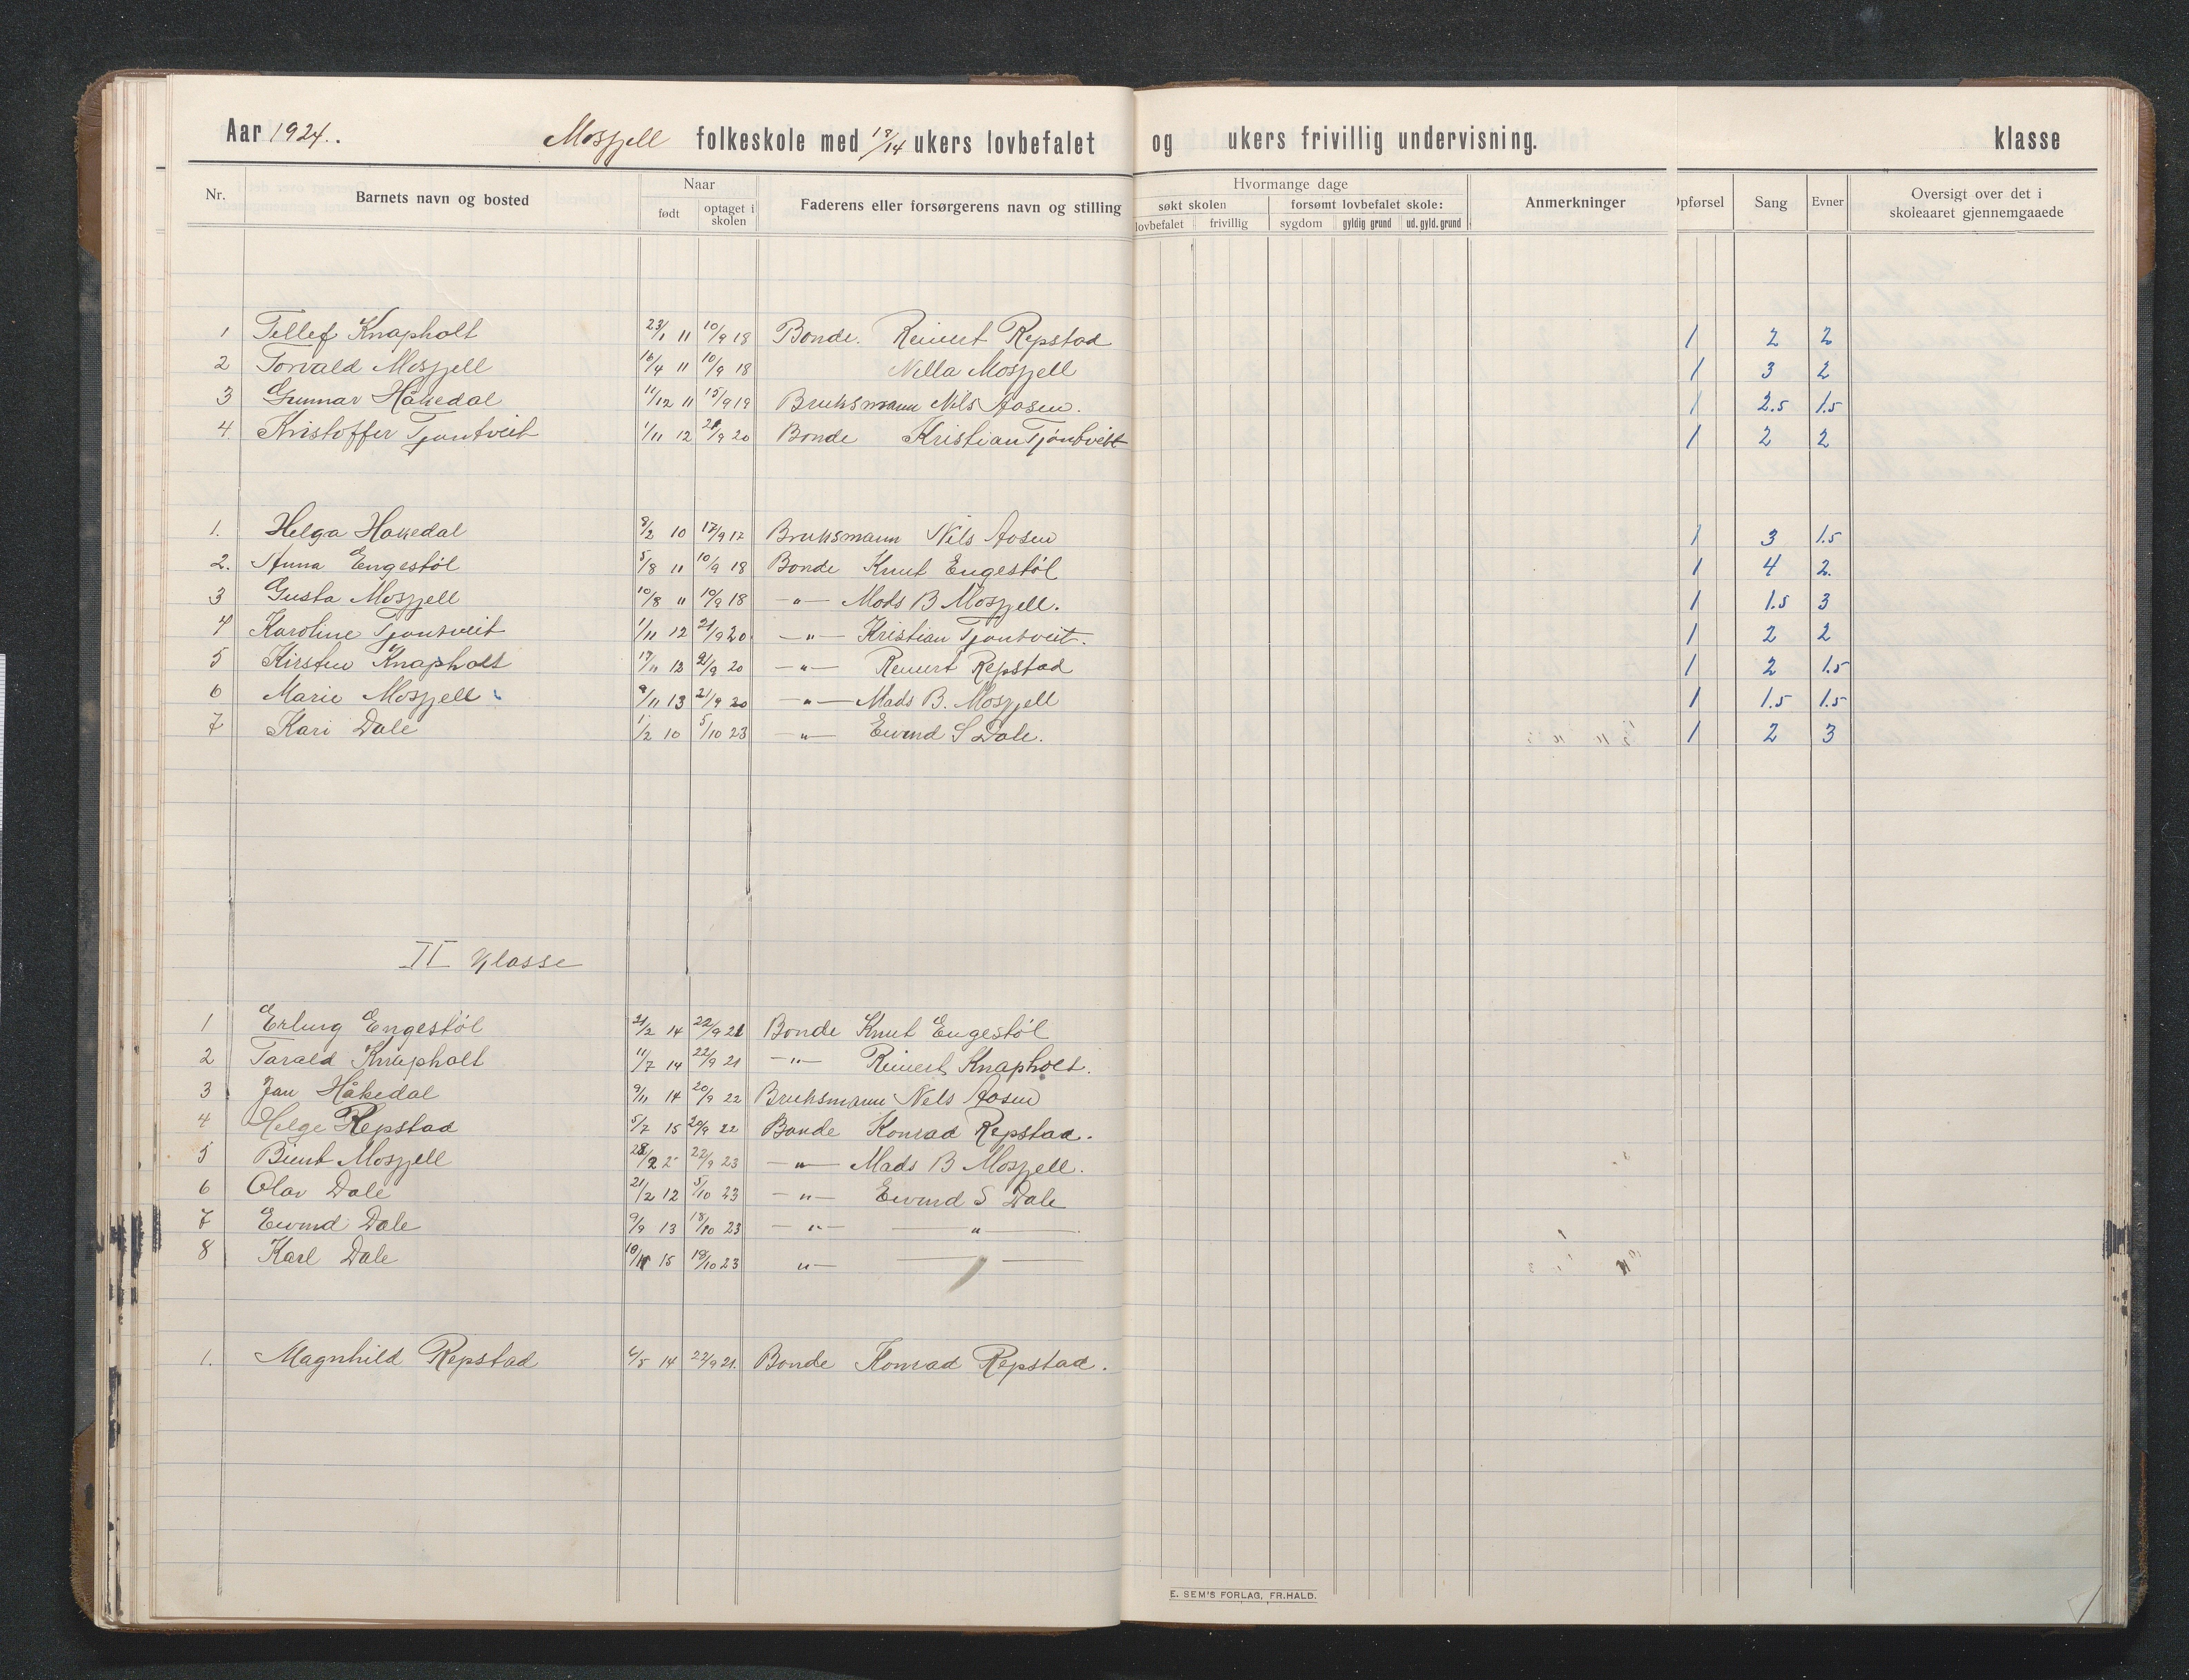 Aar 1924. Mosfjell folkeskole med 18/14 ukers lovbefalet og ukers frivillig undervisning. klasse
Nr. Barnets navn og bosted Naar Faderens eller forsørgerens navn og stilling Hvormange dage Anmerkninger Opførsel Sang Evner Oversigt over det i skoleaaret gjennemgaaede
født optaget i skolen søkt skolen forsømt lovbefalet skole:
lovbefalet frivillig sygdom gyldig grund ud. gyld. grund
1 Tellef Knapholt 23/1 11 10/9 18 Bonde. Reinert Repstad 1 2 2
2 Torvald Mosfjell 16/4 11 10/9 18 Nella Mosfjell 1 3 2
3 Gunnar Håkedal 11/12 11 15/9 19 Bruksmann Nils Aasen. 1 2.5 1.5
4 Kristoffer Tjøntveit 1/11 12 21/9 20 Bonde Kristian Tjøntveit 1 2 2
1. Helga Hakedal 8/2 10 17/9 17 Bruksmann Nils Aasen 1 3 1.5
2. Anna Engestøl 5/8 11 10/9 18 Bonde Knut Engestøl 1 4 2.
3 Gusta Mosfjell 10/8 " 10/9 18 -"- Mads B Mosfjell. 1 1.5 3
4 Karoline Tjøntveit 1/11 12 21/9 20 -"- Kristian Tjøntveit. 1 2 2
5 Kirsten Knapholt 17/11 12 21/9 20 -"- Reinert Repstad 1 2 1.5
6 Marie Mosfjell 9/11 13 21/9 20 -"- Mads B. Mosfjell 1 1.5 1.5
7 Kari Dale 1/2 10 5/10 23 -"- Eivind S Dale. 1 2 3
II Klasse
1 Erling Engestøl 21/2 14 22/9 21 Bonde Knut Engestøl
2 Tarald Knapholt 11/7 14 22/9 21 -"- Reinert Knapholt.
3 Jan Håkedal 9/11 14 20/9 22 Bruksmann Nels Aasen
4 Helge Repstad 5/7 15 20/9 22 Bonde Konrad Repstad.
5 Biint Mosfjell 28/2 22/9 23 -"- Mads B Mosfjell.
6 Olav Dale 21/2 12 5/10 23 -"- Eivind S Dale
7 Eivind Dale 9/9 13 18/10 23 -"- "
8 Karl Dale 15 18/10 23 "-
1. Magnhild Repstad 6/5 14 22/9 21. Bonde Konrad Repstad.
E. SEM'S FORLAG, FR.HALD.